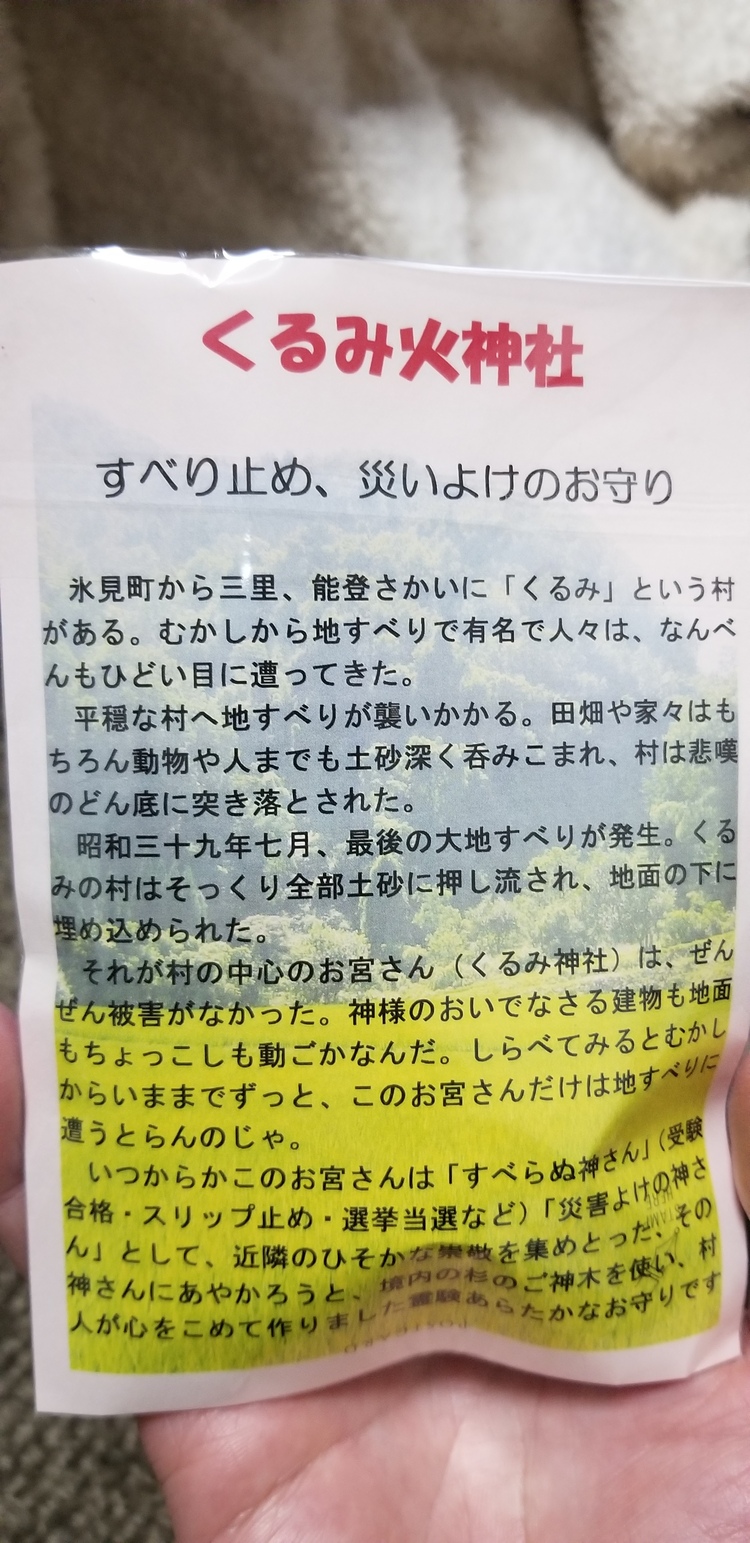 くるみ火神社
すべり止め、災いよけのお守り
氷見町から三里、能登さかいに「くるみ」という村
がある。むかしから地すべりで有名で人々は、なんべ
んもひどい目に遭ってきた。
平穏な村へ地すべりが襲いかかる。田畑や家々はも
ちろん動物や人までも土砂深く呑みこまれ、村は悲嘆
のどん底に突き落とされた。
昭和三十九年七月、最後の大地すべりが発生。くる
みの村はそっくり全部土砂に押し流され、地面の下に
埋め込められた。
それが村の中心のお宮さん（くるみ神社）は、ぜん
ぜん被害がなかった。神様のおいでなさる建物も地面
もちょっこしも動ごかなんだ。しらべてみるとむかし
からいままでずっと、このお宮さんだけは地すべりに
遭うとらんのじゃ。
いつからかこのお宮さんは「すべらぬ神さん」（受験
合格・スリップ止め・選挙当選など）「災害よけの神さ
ん」として、近隣のひそかな崇敬を集めとった、その
神さんにあやかろうと、境内の杉のご神木を使い、村
人が心をこめて作りました霊験あらたかなお守りです